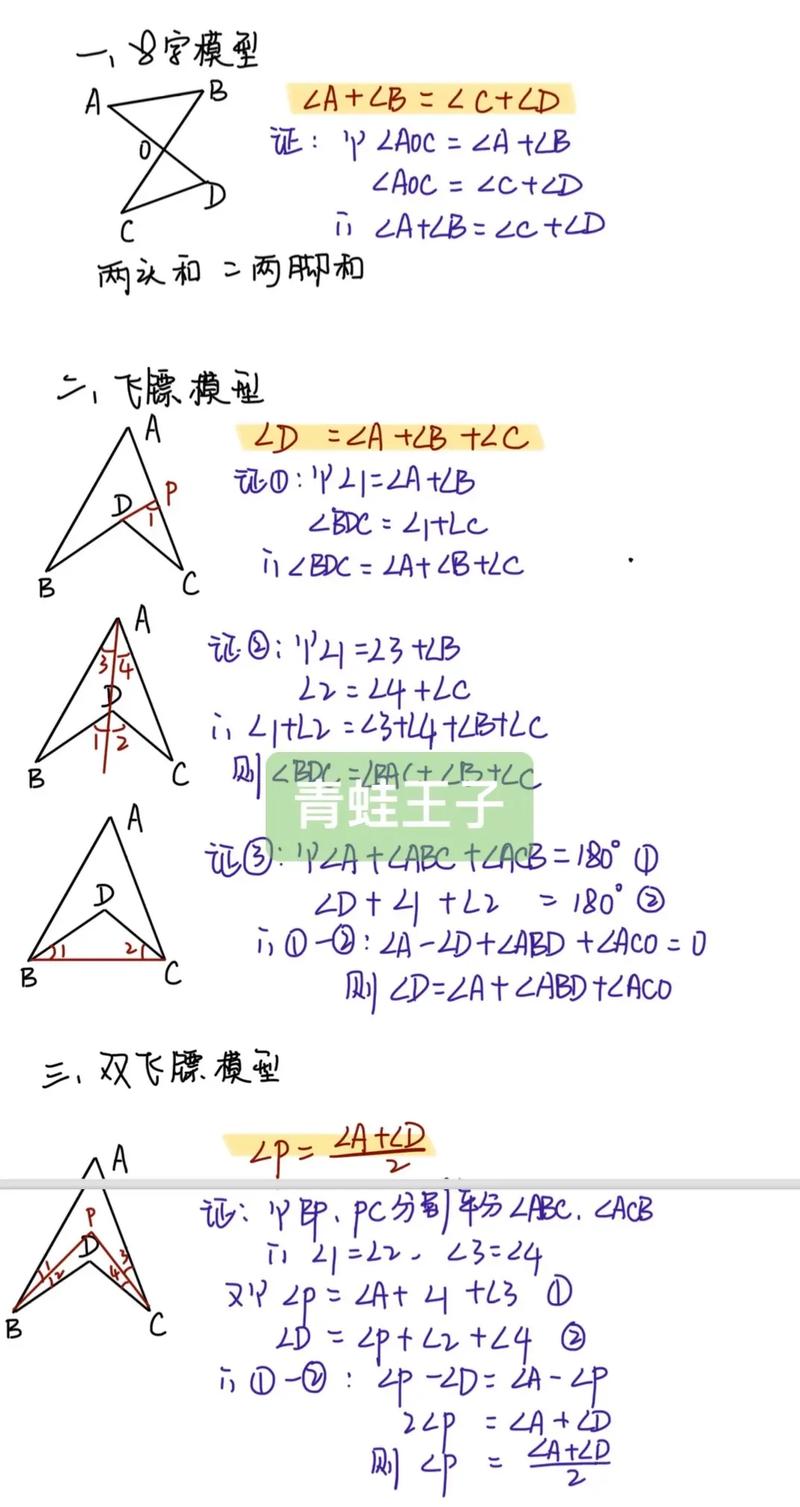 一、8字模型
A B O D C
∠A+∠B=∠C+∠D
证:∵∠AOC=∠A+∠B
∠AOC=∠C+∠D
∴∠A+∠B=∠C+∠D
两头和=两脚和
二、飞镖模型
A P D 1 B C
∠D =∠A+∠B+∠C
证①:∵∠1=∠A+∠B
∠BDC=∠1+∠C
∴∠BDC=∠A+∠B+∠C
A 3 4 D 1 2 B C
证②:∵∠1=∠3+∠B
∠2=∠4+∠C
∴∠1+∠2=∠3+∠4+∠B+∠C
则∠BDC=∠BAC+∠B+∠C
青蛙王子
A D 1 2 B C
证③:∵∠A+∠ABC+∠ACB=180° ①
∠D+∠1+∠2 =180° ②
∴①-②:∠A-∠D+∠ABD+∠ACO=0
则∠D=∠A+∠ABD+∠ACO
三、双飞镖模型
A P D 1 2 3 4 B C
∠P=∠A+∠D/2
证:∵BP、PC分别平分∠ABC、∠ACB
∴∠1=∠2、∠3=∠4
又∵∠P=∠A+∠1+∠3 ①
∠D=∠P+∠2+∠4 ②
∴①-②:∠P-∠D=∠A-∠P
2∠P =∠A+∠D
则∠P = ∠A+∠D/2